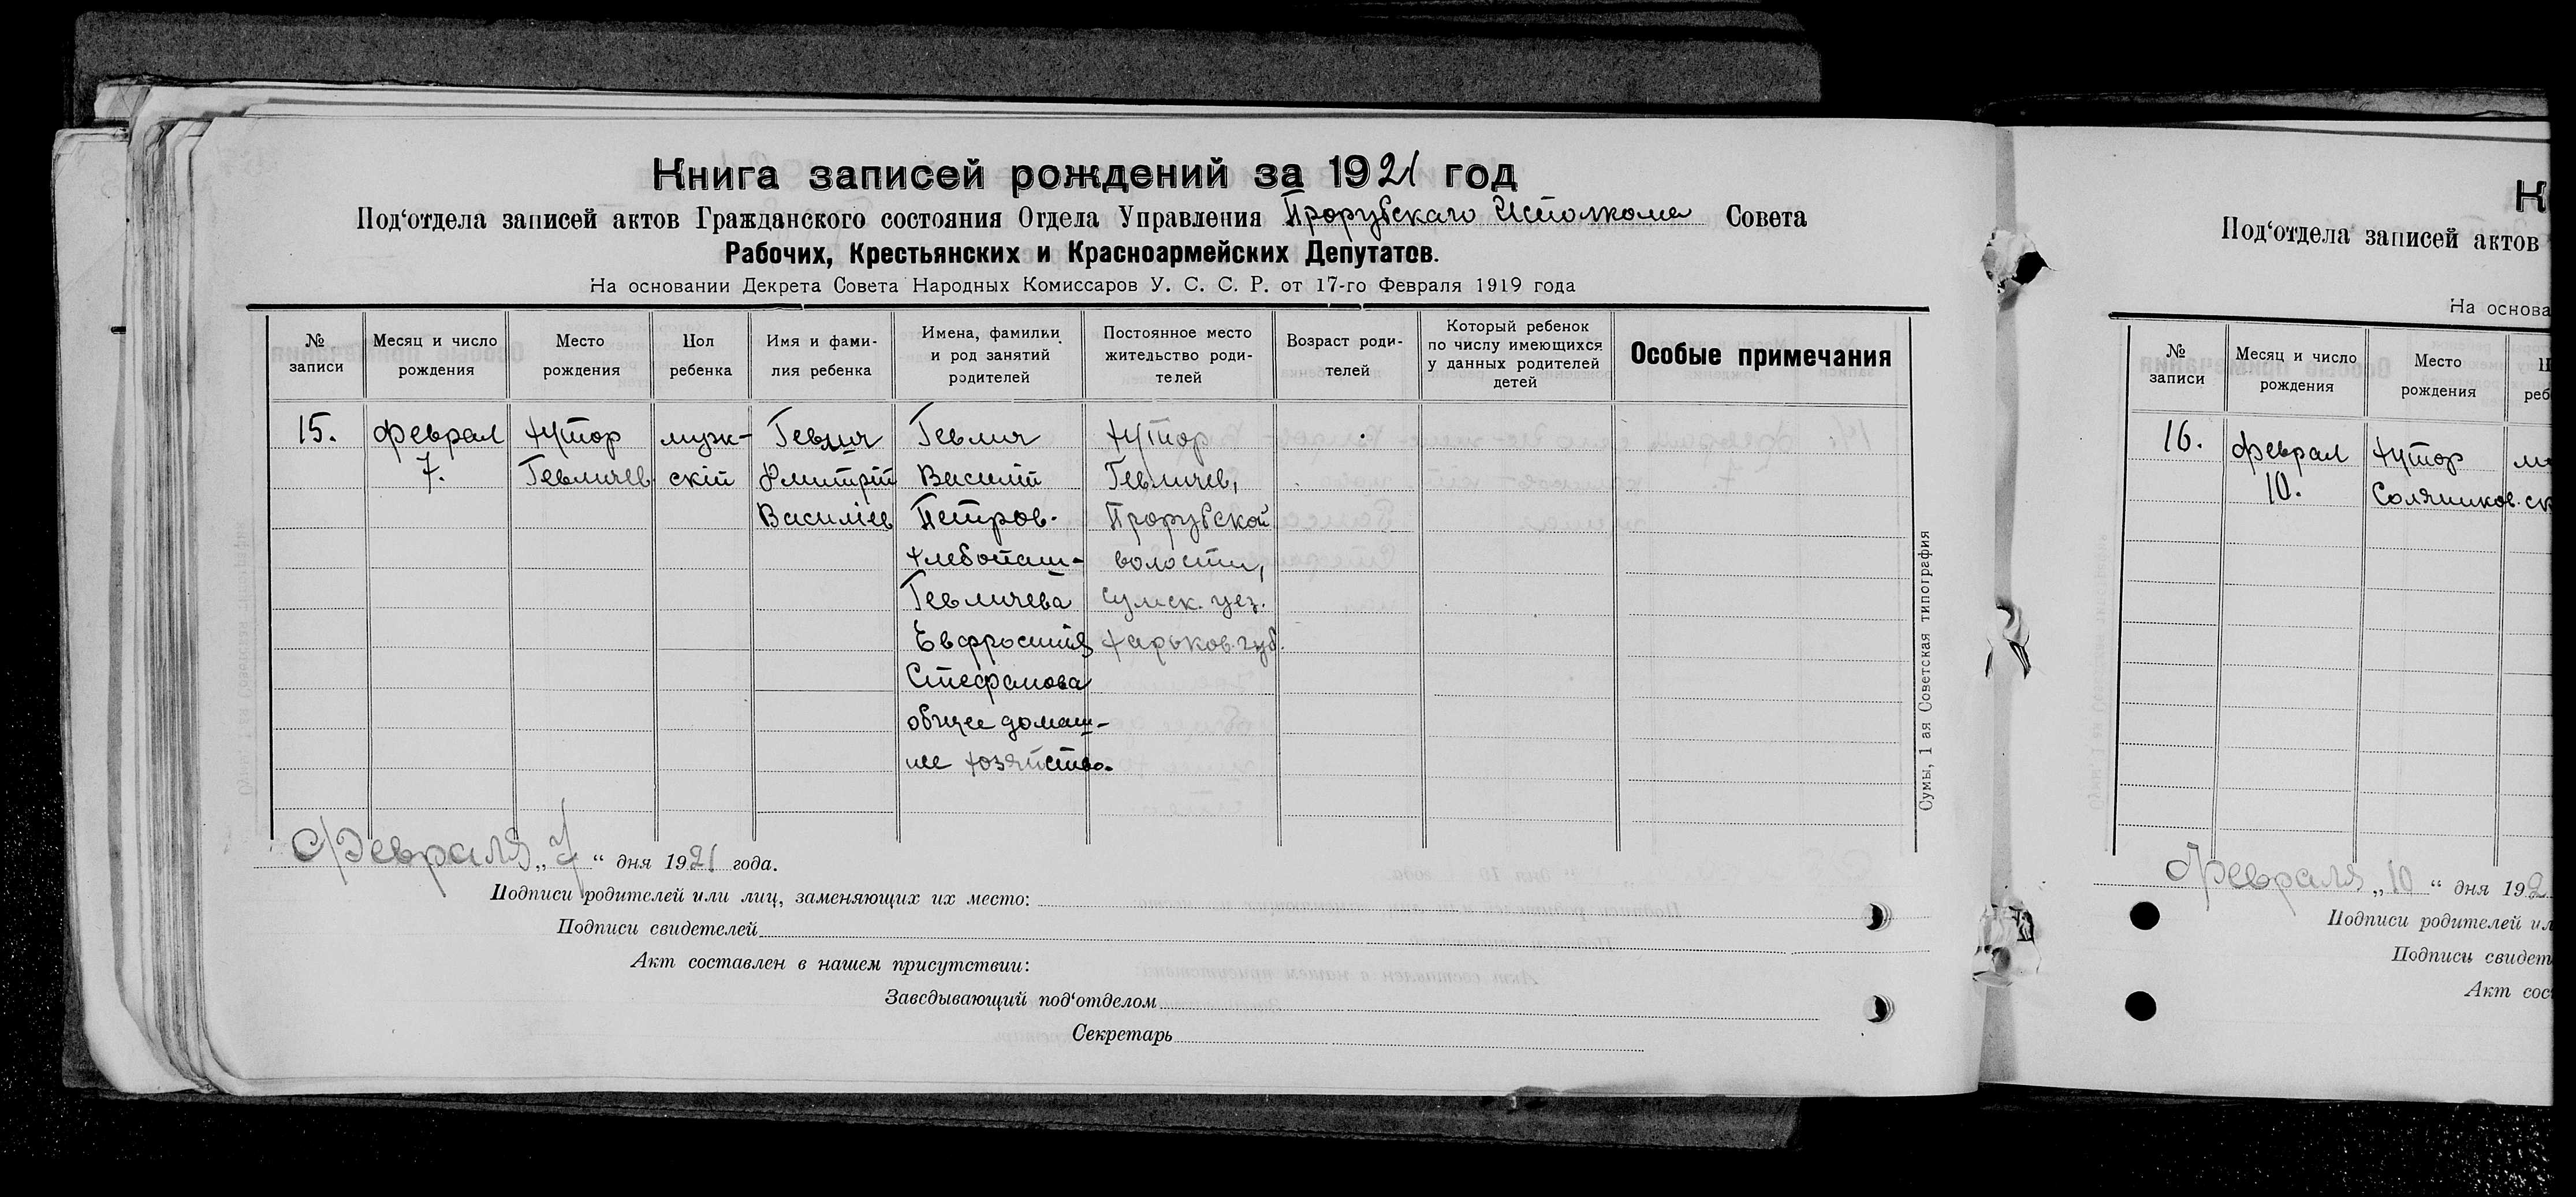 Книга записей рождений за 1921 год
Под‘отдела записей актов Гражданского состояния Отдела Управления Прорубскаго Исполкома Совета
Рабочих, Крестьянских и Красноармейских Депутатов.
На основании Декрета Совета Народных Комиссаров У. С. С. Р. от 17-го Февраля 1919 года
№ записи
Месяц и число рождения
Место рождения
Пол ребенка
Имя и фами-
лия ребенка
Имена, фамилии
и род занятий
родителей
Постоянное место
жительство роди-
телей
Возраст роди-
телей
Который ребенок
по числу имеющихся
у данных родителей
детей
Особые примечания
15.
феврал
7.
хутор
Гевличев
муж-
скій
Гевлич
Дмитрій
Василіев
Гевлич
Василій
Петров.
хлебопаш-
Гевличева
Евфросинія
Стефанова
общее домаш-
нее хозяйство.
хутор
Гевличев,
Прорубской
волости,
Сумск. уез.
Харьков. губ.
Февраля „7“ дня 1921 года.
Подписи родителей или лиц, заменяющих их место:
Подписи свидетелей
Акт составлен в нашем присутствии:
Заведывающий под‘отделом
Секретарь
Сумы, 1 ая Советская типография
К
Под‘отдела записей актов
На основа
№
записи
Месяц и число
рождения
Место
рождения
П
реб
16.
феврал
10.
хутор
Соляников.
м
ск
Февраля „10“ дня 192
Подписи родителей ил
Подписи свидет
Акт сос